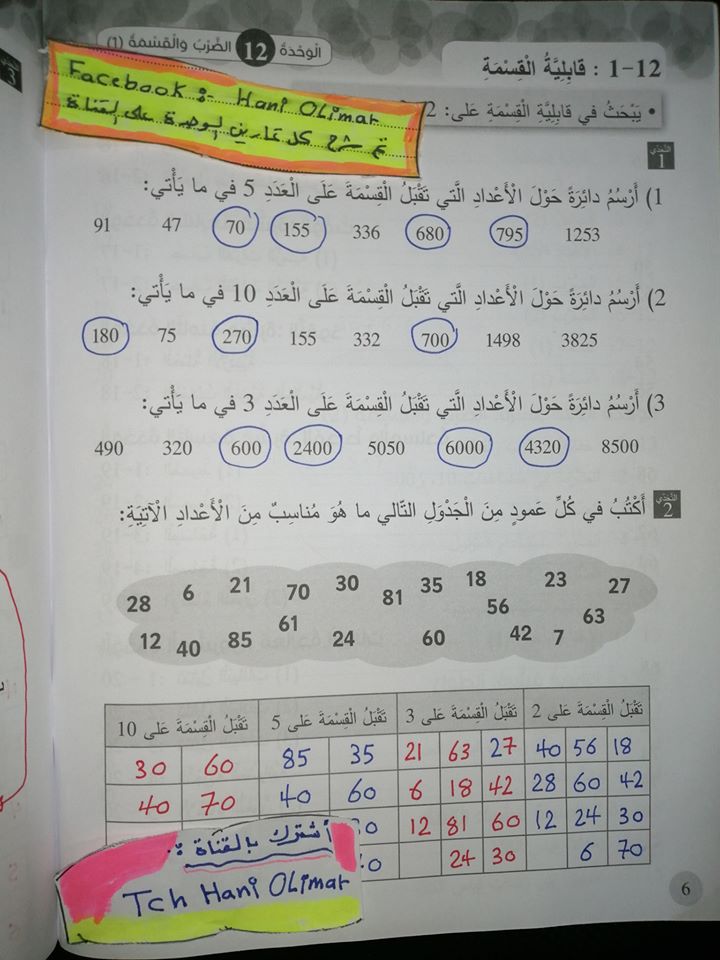 الْوَحْدَةُ 12 الضَّرْبُ وَالْقِسْمَةُ (1)
1-12 : قابِلِيَّةُ الْقِسْمَةِ
Facebook :- Hani OLimat
تم شرح كل تمارين الوحدة على القناة
• يَبْحَثُ في قابِلِيَّةِ الْقِسْمَةِ عَلى: 2
التَّحَدّي 1
1) أَرْسُمُ دائِرَةً حَوْلَ الْأَعْدادِ الَّتي تَقْبَلُ الْقِسْمَةَ عَلَى الْعَدَدِ 5 في ما يَأْتي:
91 47 70 155 336 680 795 1253
2) أَرْسُمُ دائِرَةً حَوْلَ الْأَعْدادِ الَّتي تَقْبَلُ الْقِسْمَةَ عَلَى الْعَدَدِ 10 في ما يَأْتي:
180 75 270 155 332 700 1498 3825
3) أَرْسُمُ دائِرَةً حَوْلَ الْأَعْدادِ الَّتي تَقْبَلُ الْقِسْمَةَ عَلَى الْعَدَدِ 3 في ما يَأْتي:
490 320 600 2400 5050 6000 4320 8500
التَّحَدّي 2
أَكْتُبُ في كُلِّ عَمودٍ مِنَ الْجَدْوَلِ التّالي ما هُوَ مُناسِبٌ مِنَ الْأَعْدادِ الْآتِيَةِ:
28 6 21 70 30 81 35 18 56 23 27
12 40 85 61 24 60 42 7 63
تَقْبَلُ الْقِسْمَةَ عَلى 2 تَقْبَلُ الْقِسْمَةَ عَلى 3 تَقْبَلُ الْقِسْمَةَ عَلى 5 تَقْبَلُ الْقِسْمَةَ عَلى 10
30 60 85 35 21 63 27 40 56 18
40 70 40 60 6 18 42 28 60 42
30 12 81 60 12 24 30
24 30 6 70
أشترك بالقناة :-
Tch Hani OLimat
6